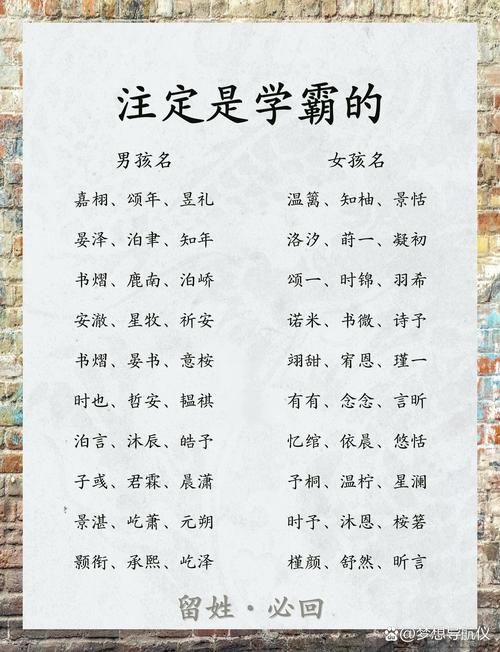 注定是学霸的
男孩名 女孩名
嘉栩、颂年、昱礼 温篱、知柚、景恬
晏泽、泊聿、知年 洛汐、莳一、凝初
书熠、鹿南、泊峤 颂一、时锦、羽希
安澈、星牧、祈安 诺米、书微、诗予
书熠、晏书、意桉 翊甜、宥恩、瑾一
时也、哲安、韫祺 有有、念念、言昕
泊言、沐辰、皓予 忆绾、依晨、悠恬
子彧、君霖、晨潇 予桐、温柠、星澜
景湛、屹萧、元朔 时予、沐恩、桉箬
颢衔、承熙、屹泽 槿颜、舒然、昕言
留姓·必回
@梦想导航仪